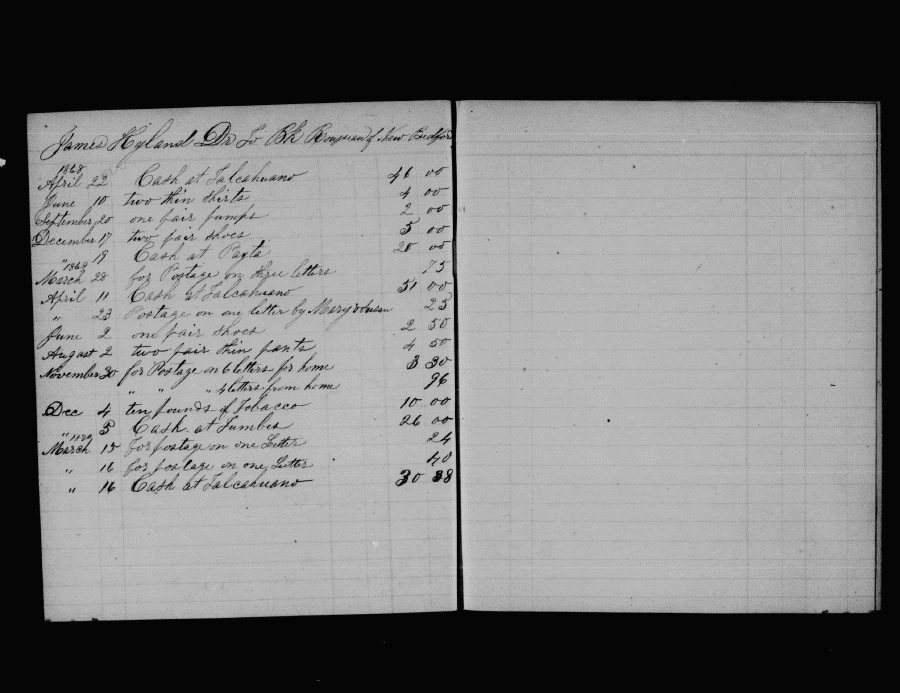 James Hyland Dr To Bk Rousseau of New Bedford
1868
April 22 Cash at Talcahuano 46 00
June 10 two thin Shirts 4 00
September 20 one pair pumps 2 00
December 17 two pair shoes 5 00
" 19 Cash at Payta 20 00
1869
March 28 for Postage on three letters 75
April 11 Cash at Talcahuano 51 00
" 23 Postage on one letter by Mary & Susan 25
June 2 one pair shoes 2 50
August 2 two pair thin pants 4 50
November 30 for Postage on 6 letters for home 3 30
" " " 4 letters from home 96
Dec 4 ten pounds of Tobacco 10 00
" 5 Cash at Tumbes 26 00
March 15 for postage on one Letter 24
" 16 for postage on one Letter 40
" 16 Cash at Talcahuano 30 38